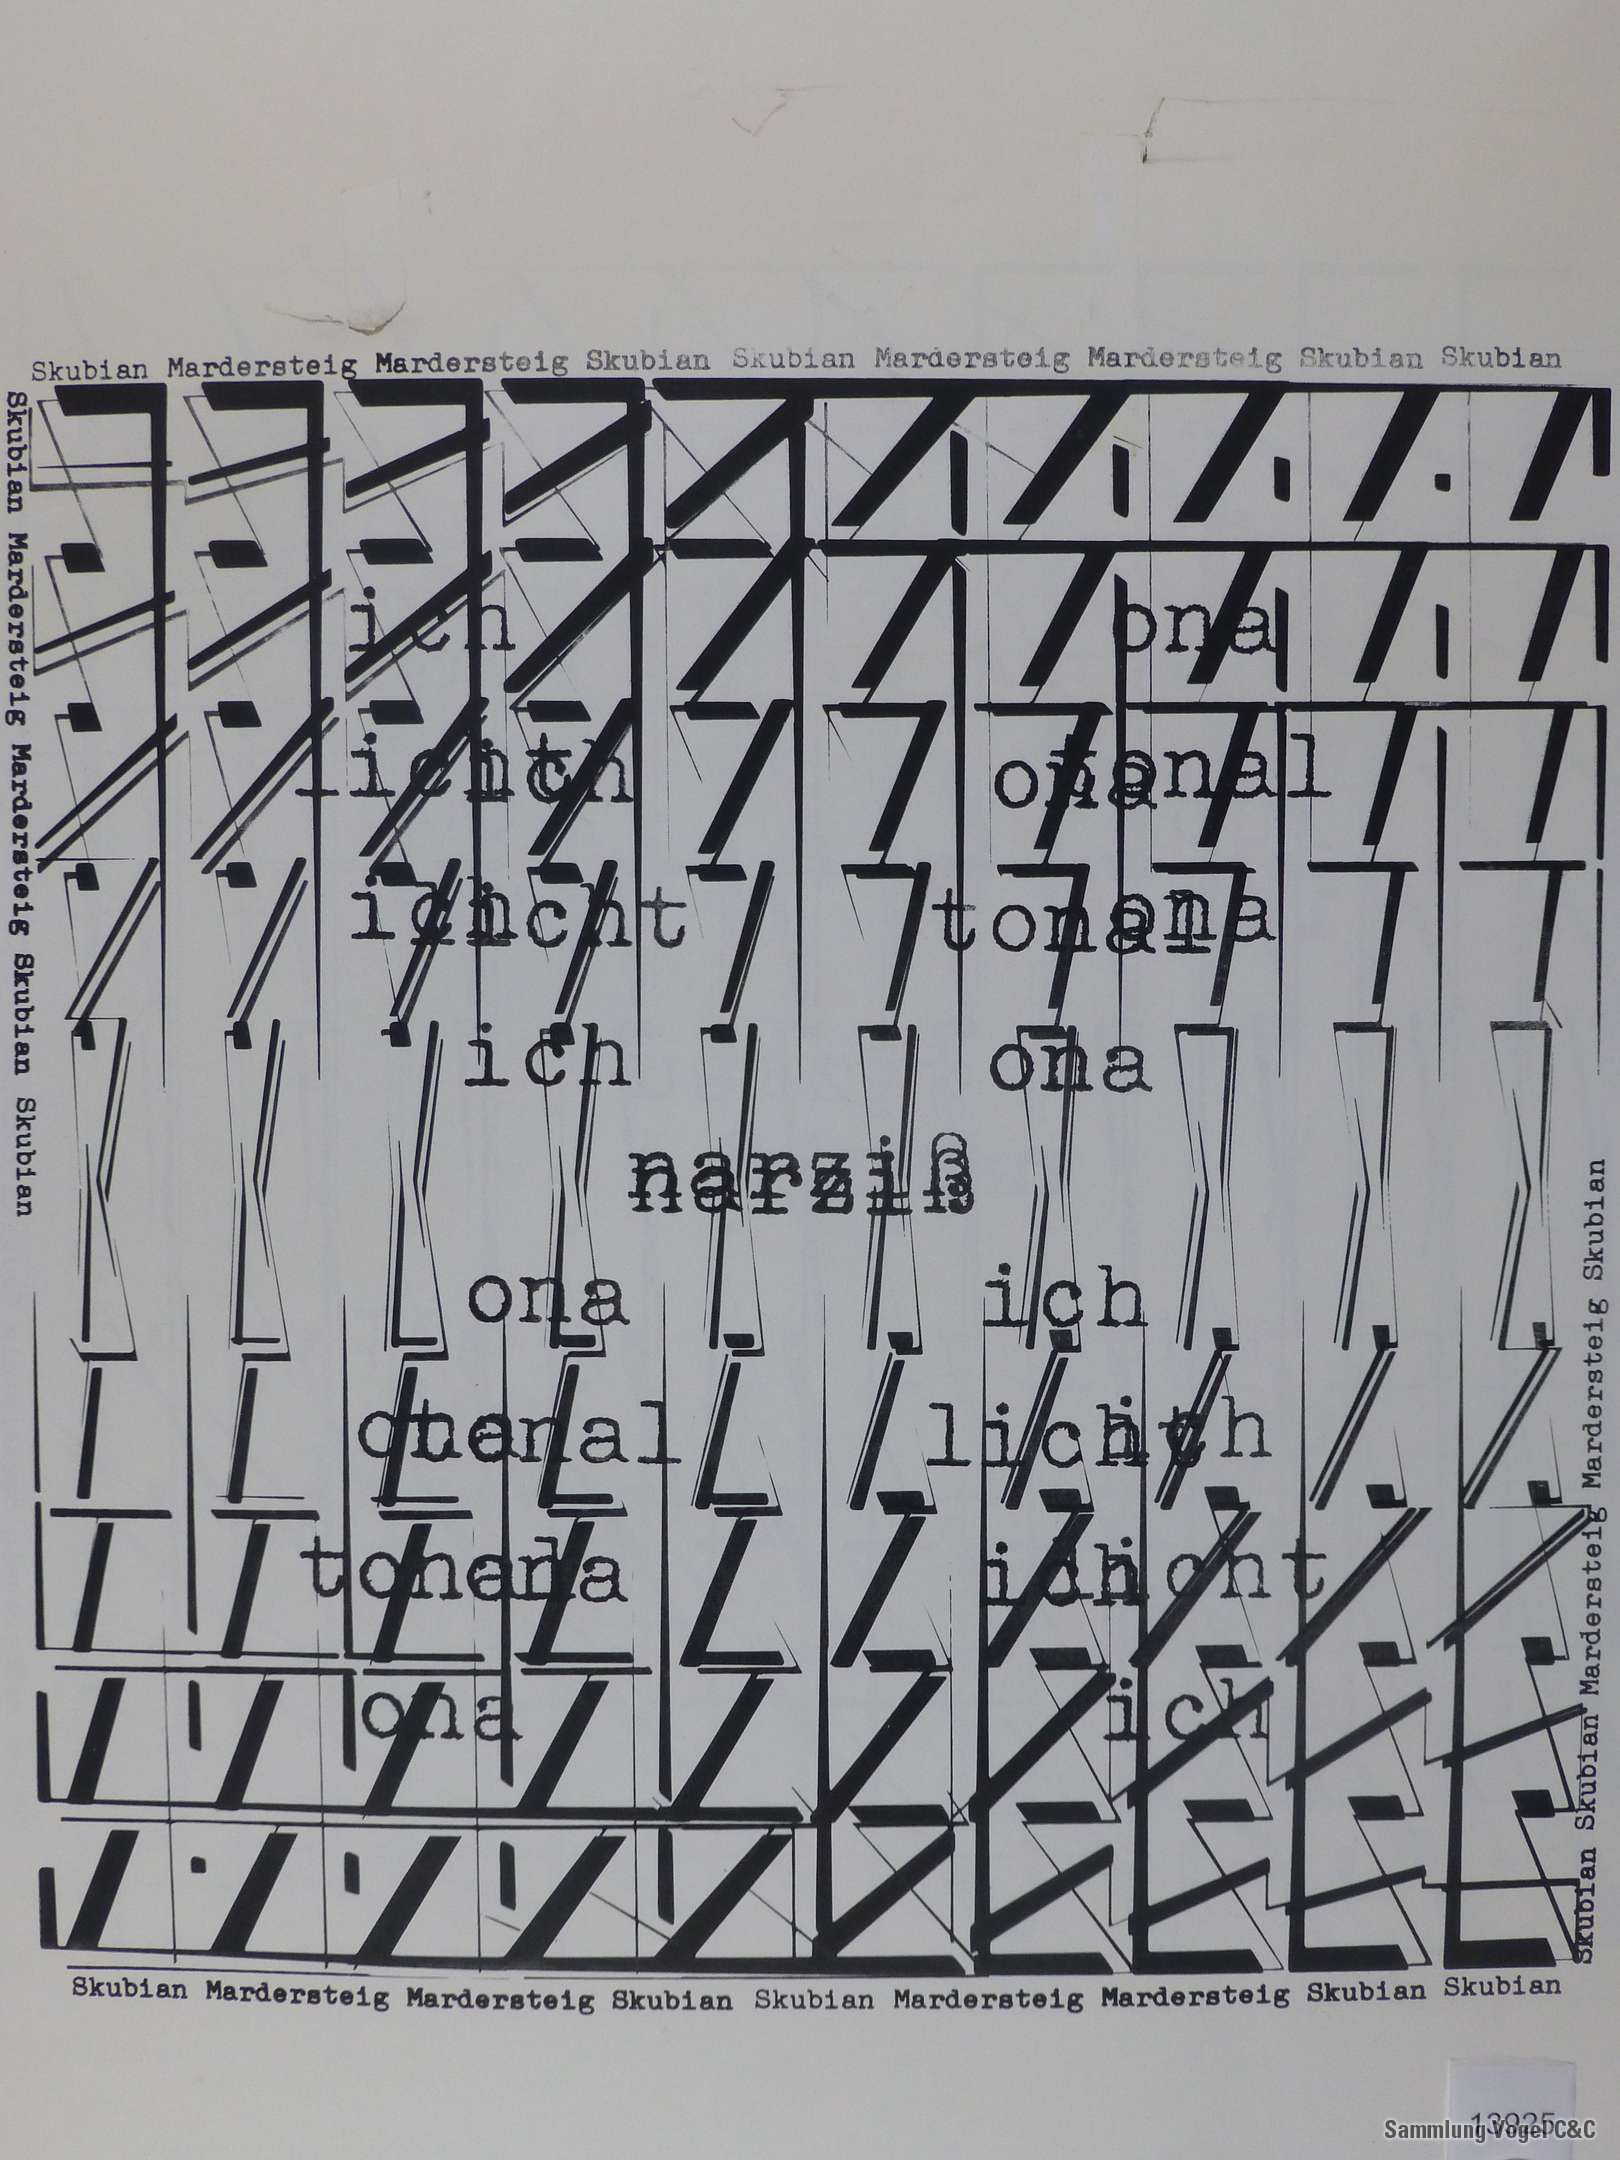 Skubian Mardersteig Mardersteig Skubian Skubian Mardersteig Mardersteig Skubian Skubian
Skubian Mardersteig Mardersteig Mardersteig Skubian Skubian
ich ona
licht ich ona tonal
ich licht tonal ona
ich ona
narziß
ona ich
ona tonal licht ich
tonal ona ich licht
ona ich
Skubian Skubian Mardersteig Mardersteig Mardersteig Skubian
Skubian Mardersteig Mardersteig Skubian Skubian Mardersteig Mardersteig Skubian Skubian
13925
Sammlung Vogel C&C